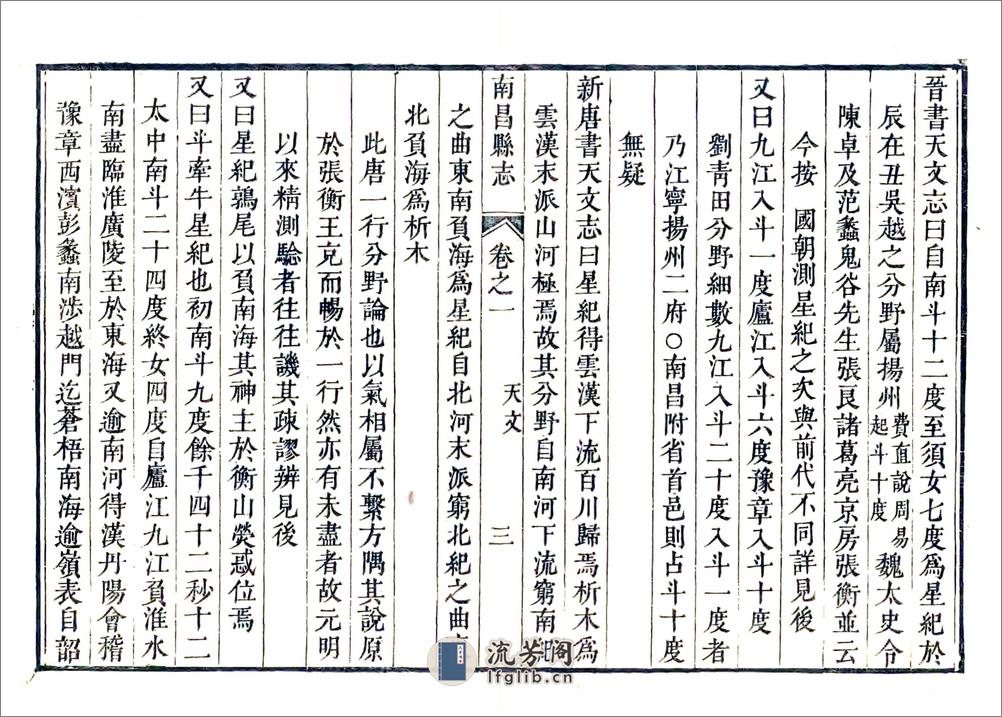 晉書天文志曰自南斗十二度至須女七度爲星紀於
辰在丑吳越之分野屬揚州費直說周易起斗十度魏太史令
陳卓及范蠡鬼谷先生張良諸葛亮京房張衡並云
今按 國朝測星紀之次與前代不同詳見後
又曰九江入斗一度廬江入斗六度豫章入斗十度
劉青田分野細數九江入斗二十度入斗一度者
乃江寧揚州二府○南昌附省首邑則占斗十度
無疑
新唐書天文志曰星紀得雲漢下流百川歸焉析木爲
雲漢末派山河極焉故其分野自南河下流窮南紀
南昌縣志 卷之一 天文 三
之曲東南負海爲星紀自北河末派窮北紀之曲
北負海爲析木
此唐一行分野論也以氣相屬不繫方隅其說原
於張衡王充而暢於一行然亦有未盡者故元明
以來精測驗者往往譏其疎謬辨見後
又曰星紀鶉尾以負南海其神主於衡山熒惑位焉
又曰斗牽牛星紀也初南斗九度餘千四十二秒十二
太中南斗二十四度終女四度自廬江九江負淮水
南盡臨淮廣陵至於東海又逾南河得漢丹陽會稽
豫章西濱彭蠡南涉越門迄蒼梧南海逾嶺表自韶
流芳阁
lfglib.cn